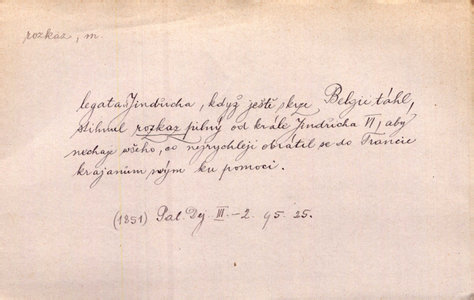 rozkaz, m.
legata Jindřicha, když ještě skrze Belgii táhl,
stihnul rozkaz pilný od krále Jindřicha VI, aby
nechaje všeho, co nejrychleji obrátil se do Francie
krajanům svým ku pomoci.
(1851) Pal. Dj. III.-2. 95. 25.